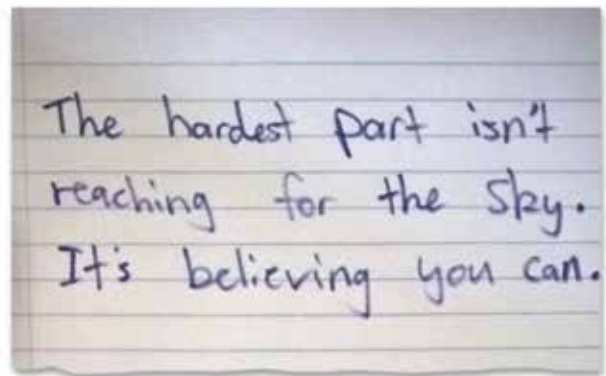 The hardest part isn't
reaching for the sky.
It's believing you can.